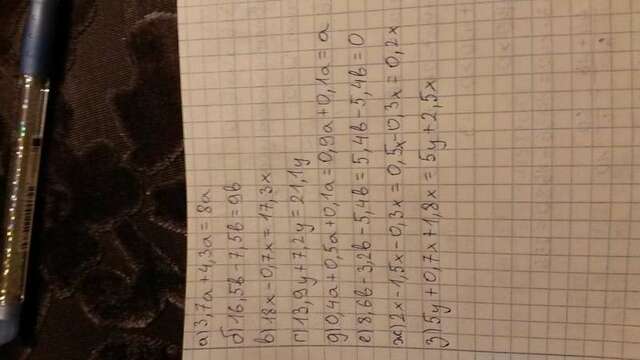 а) 3,7a + 4,3a = 8a
б) 16,5b - 7,5b = 9b
в) 18x - 0,7x = 17,3x
г) 13,9y + 7,2y = 21,1y
д) 0,4a + 0,5a + 0,1a = 0,9a + 0,1a = a
е) 8,6b - 3,2b - 5,4b = 5,4b - 5,4b = 0
ж) 2x - 1,5x - 0,3x = 0,5x - 0,3x = 0,2x
з) 5y + 0,7x + 1,8x = 5y + 2,5x